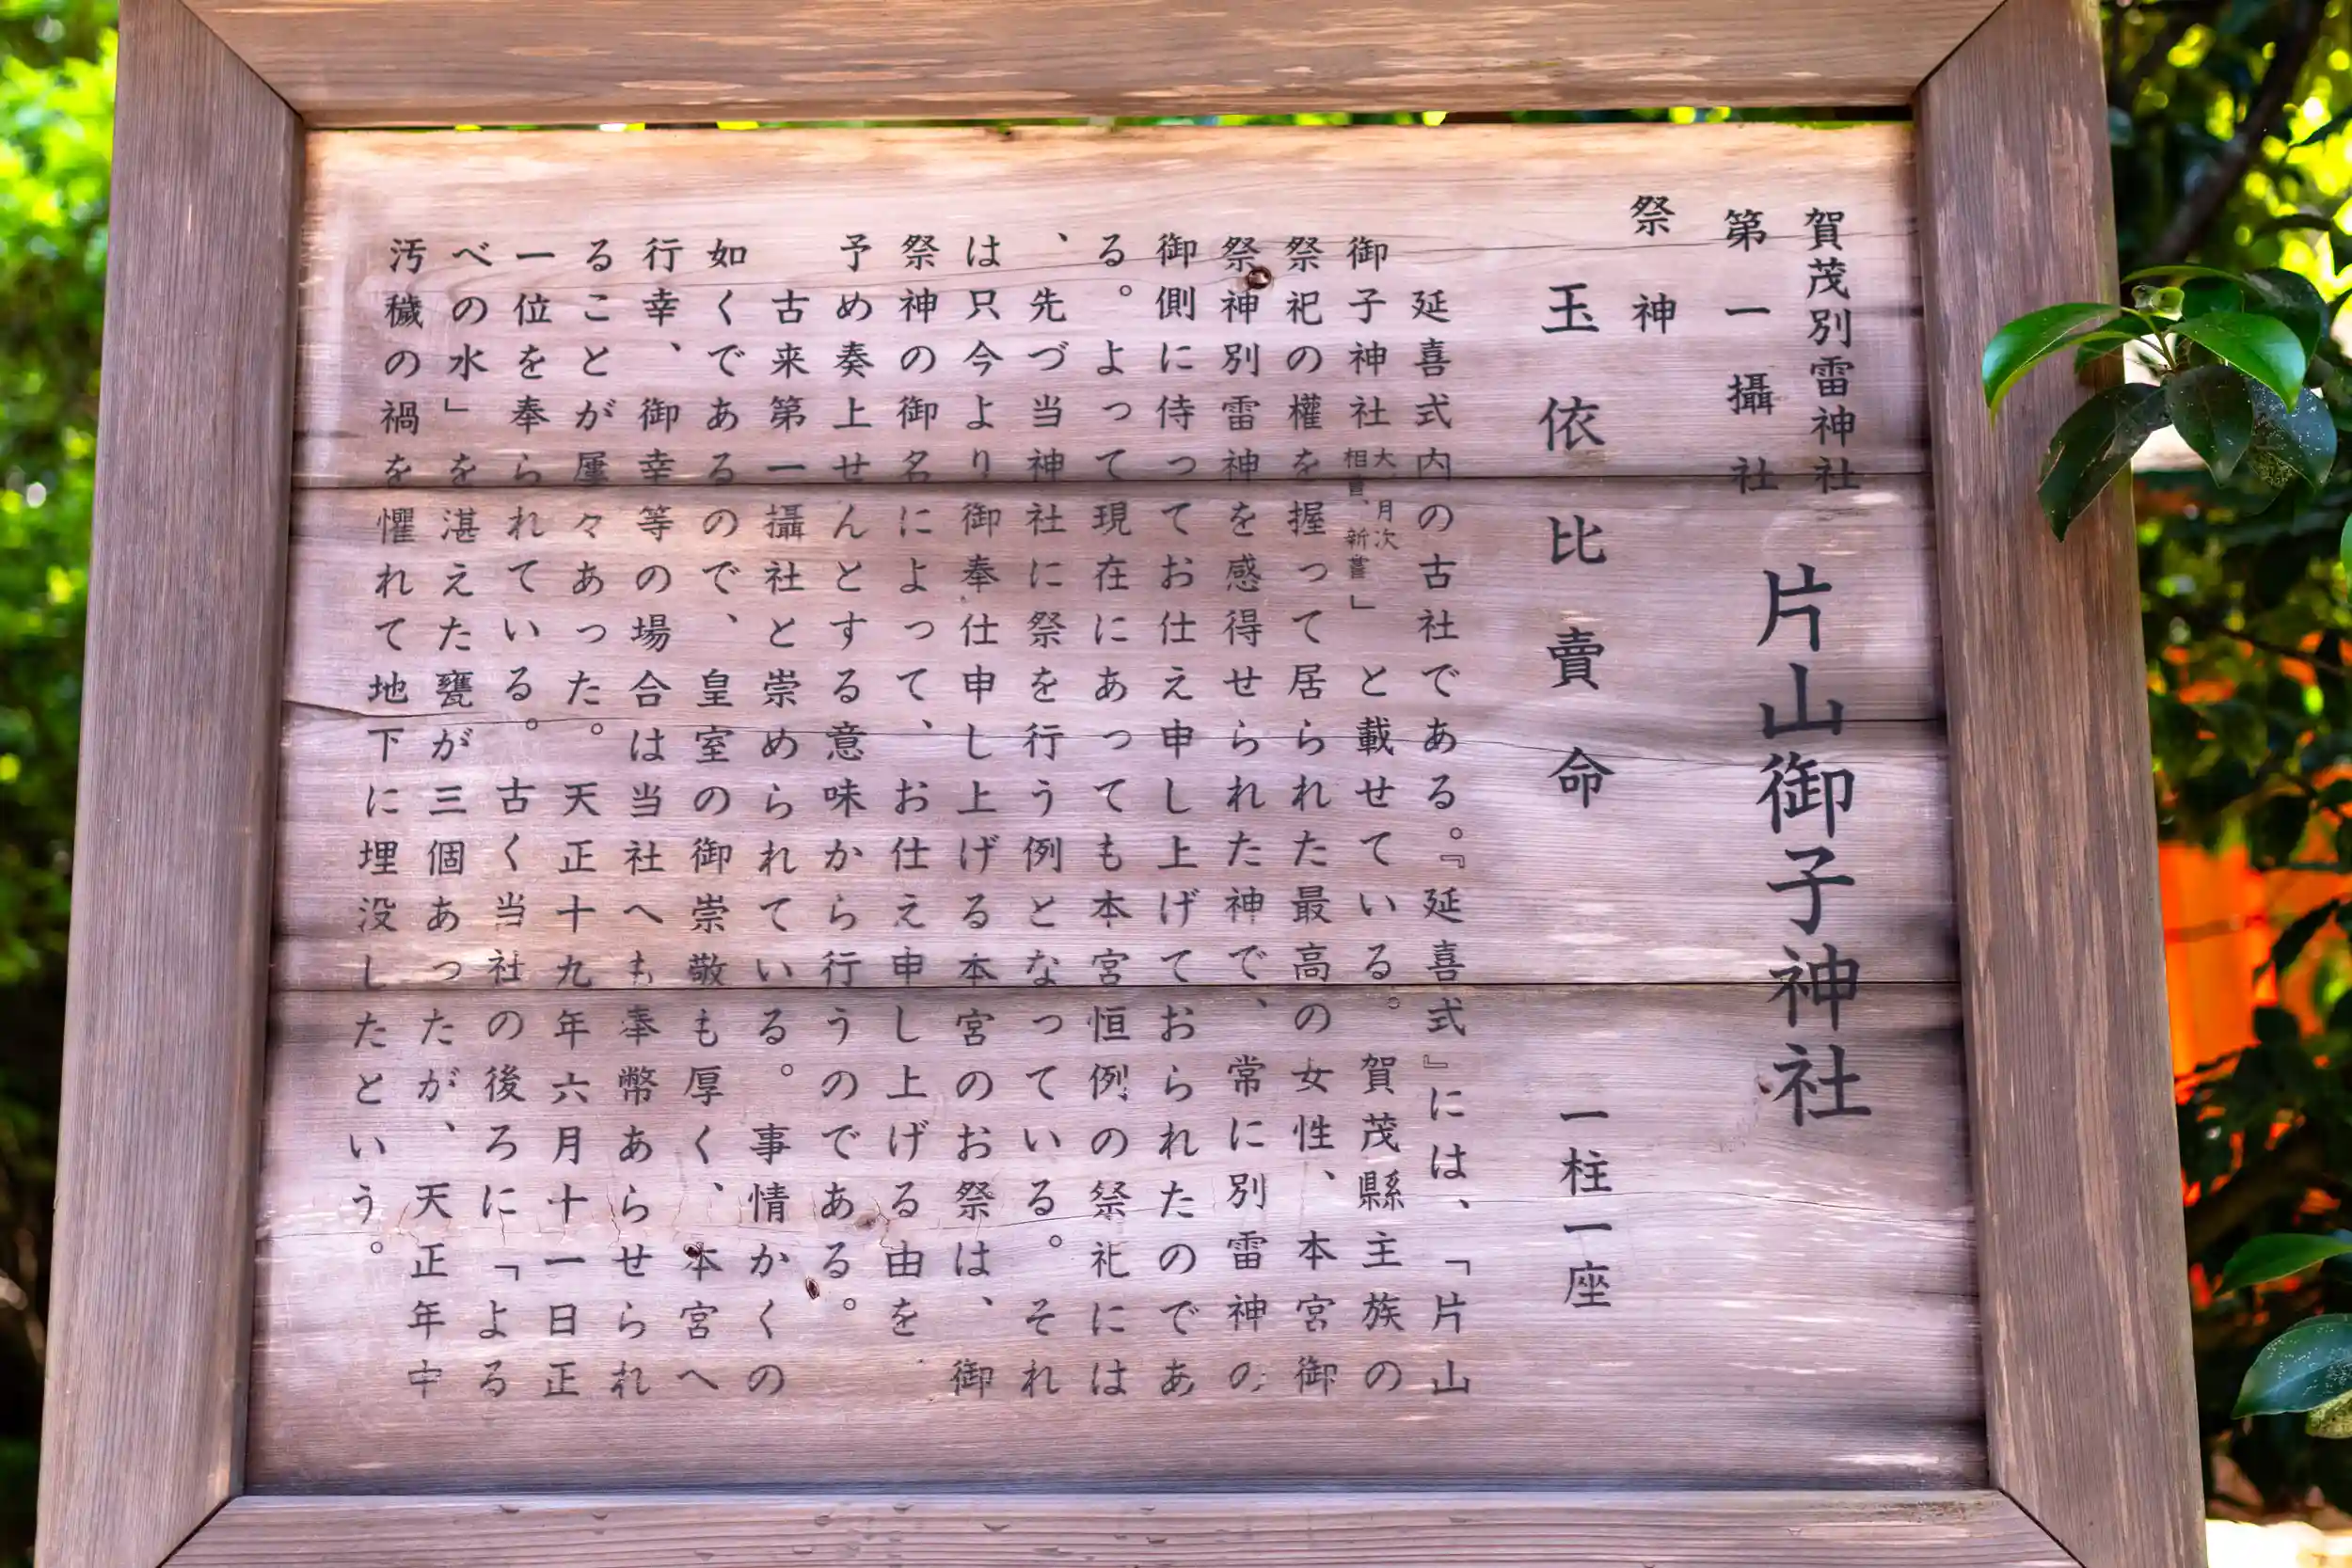 賀茂別雷神社
第一攝社
片山御子神社
祭神
玉依比賣命 一柱一座
延喜式内の古社である。『延喜式』には、「片山
御子神社大、月次相嘗、新嘗」と載せている。賀茂縣主族の
祭祀の權を握って居られた最高の女性、本宮御
祭神別雷神を感得せられた神で、常に別雷神の
御側に侍ってお仕え申し上げておられたのであ
る。よって現在にあっても本宮恒例の祭祀には
、先づ当神社に祭を行う例となっている。それ
は只今より御奉仕申し上げる本宮のお祭は、御
祭神の御名によって、お仕え申し上げる由を
予め奏上せんとする意味から行うのである。
古来第一攝社と崇められている。事情かくの
如くであるので、皇室の御崇敬も厚く、本宮へ
行幸、御幸等の場合は当社へも奉幣あらせられ
ることが屢々あった。天正十九年六月十一日正
一位を奉られている。古く当社の後ろに「よる
べの水」を湛えた甕が三個あったが、天正年中
汚穢の禍を懼れて地下に埋没したという。